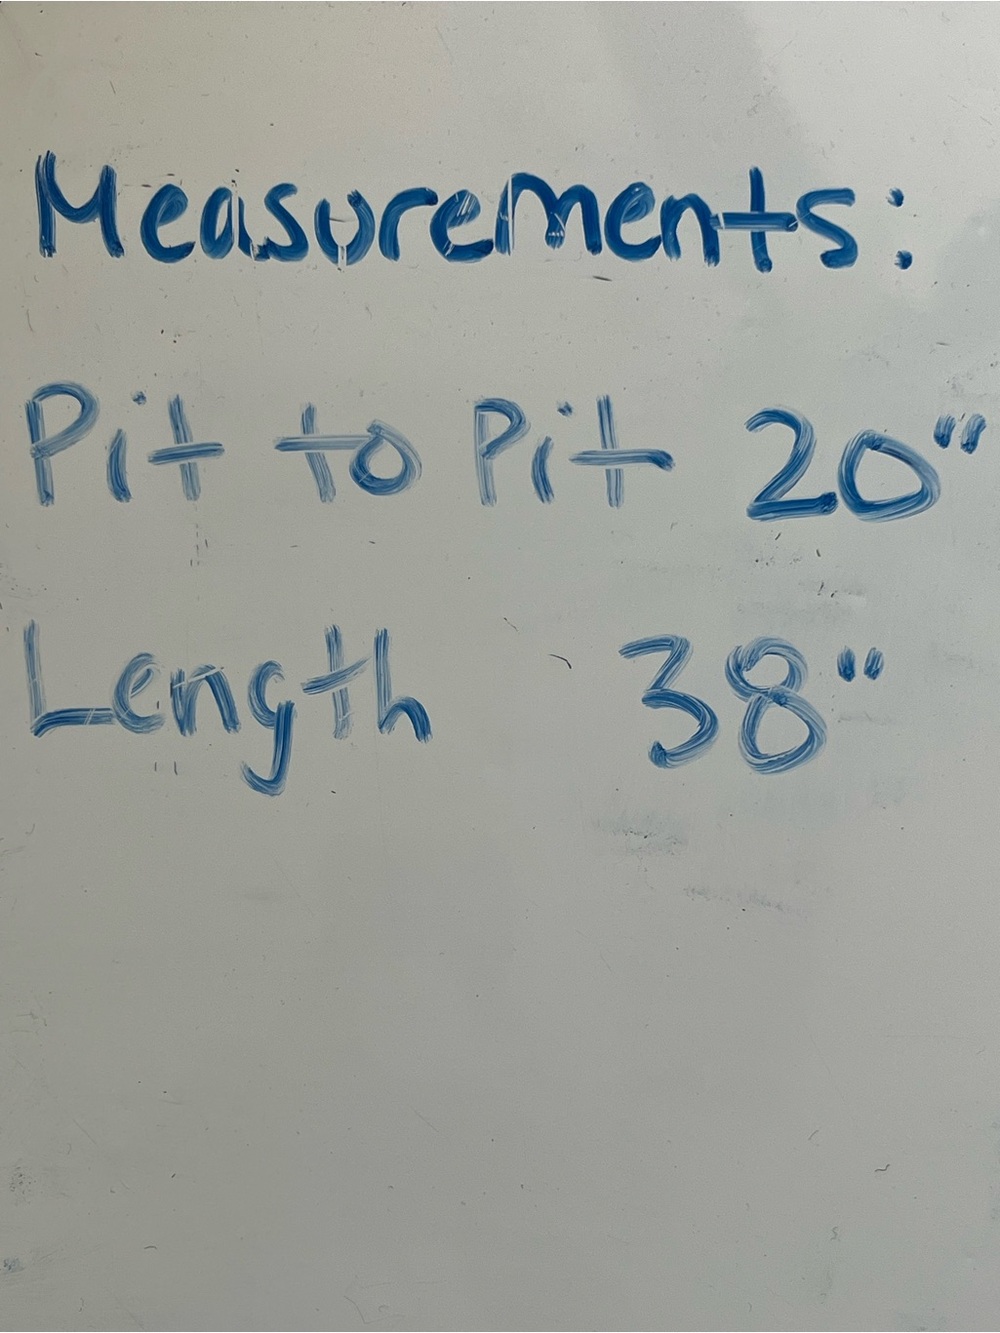 Measurements:
Pit to Pit 20"
Length 38"